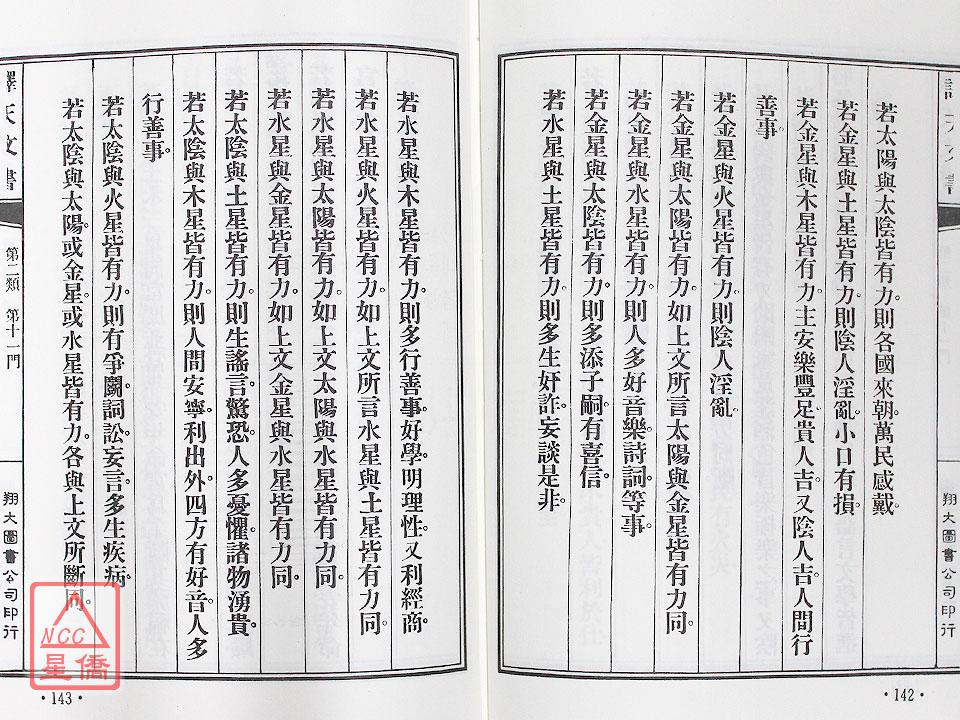 若太陽與太陰皆有力。則各國來朝。萬民感戴。
若金星與土星皆有力。則陰人淫亂。小口有損。
若金星與木星皆有力。主安樂豐足。貴人吉。又陰人吉。人間行
善事。
若金星與火星皆有力。則陰人淫亂。
若金星與太陽皆有力。如上文所言太陽與金星皆有力同。
若金星與水星皆有力。則人多好音樂詩詞等事。
若金星與太陰皆有力。則多添子嗣。有喜信。
若水星與土星皆有力。則多生奸詐。妄談是非。
翔大圖書公司印行
·142·
若水星與木星皆有力。則多行善事。好學。明理性。又利經商。
若水星與火星皆有力。如上文所言水星與土星皆有力同。
若水星與太陽皆有力。如上文太陽與水星皆有力同。
若水星與金星皆有力。如上文金星與水星皆有力同。
若太陰與土星皆有力。則生謠言。驚恐。人多憂懼。諸物湧貴。
若太陰與木星皆有力。則人間安寧。利出外。四方有好音。人多
行善事。
若太陰與火星皆有力。則有爭鬭。詞訟。妄言。多生疾病。
若太陰與太陽。或金星。或水星皆有力。各與上文所斷同。
譯天文書
第二類 第十一門
翔大圖書公司印行
·143·
NCC
星僑